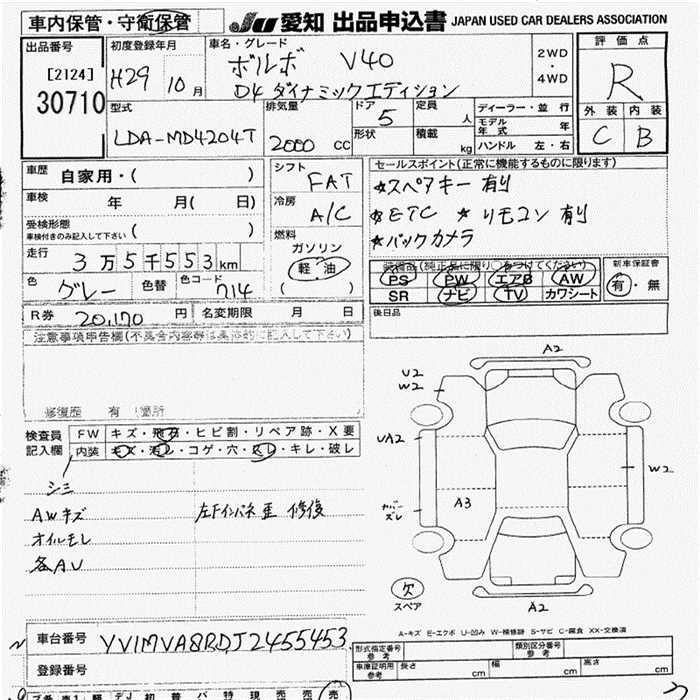 車内保管・守衛保管
JU 愛知 出品申込書 JAPAN USED CAR DEALERS ASSOCIATION
出品番号
[2124]
30710
初度登録年月
H29 10月
車名・グレード
ボルボ V40
D4 ダイナミックエディション
2WD
・
4WD
評価点
R
外装 内装
C B
型式
LDA-MD4204T
排気量
2000 CC
ドア
5
形状
定員
人
積載
kg
ディーラー・並行
モデル年式 年
ハンドル 左・右
車歴
自家用・( )
車検
年 月( 日)
受検形態
車検付きのみ記入して下さい ( )
走行
3万5千553km
色
グレー
色替
色コード
714
シフト
FAT
冷房
A/C
燃料
ガソリン
軽・油
( )
セールスポイント(正常に機能するものに限ります)
★スペアキー有り
★ETC ★リモコン有り
★バックカメラ
装備品(純正品に限り○をつけてください)
PS PW エアB AW
SR ナビ TV カワシート
新車保証書
有・無
R券 20,170 円
名変期限 月 日
後日品
注意事項申告欄(不具合内容等は具体的に記入して下さい)
修復歴 有 箇所
検査員記入欄
FW キズ・飛石・ヒビ割・リペア跡・X要
内装 キズ・汚レ・コゲ・穴・スレ・キレ・破レ
シミ
AWキズ
オイルモレ
各AU
左Fインパネ歪 修復
A2
U2
W2
UA2
カバーズレ
A3
W2
欠
スペア
A2
A-キズ E-エクボ U-凹み W-補修跡 S-サビ C-腐食 XX-交換済
車台番号
YV1MVA8RDJ2455453
登録番号
形式指定番号
参考
類別区分番号
参考
車庫証明用
参考
長さ cm
幅 cm
高さ cm